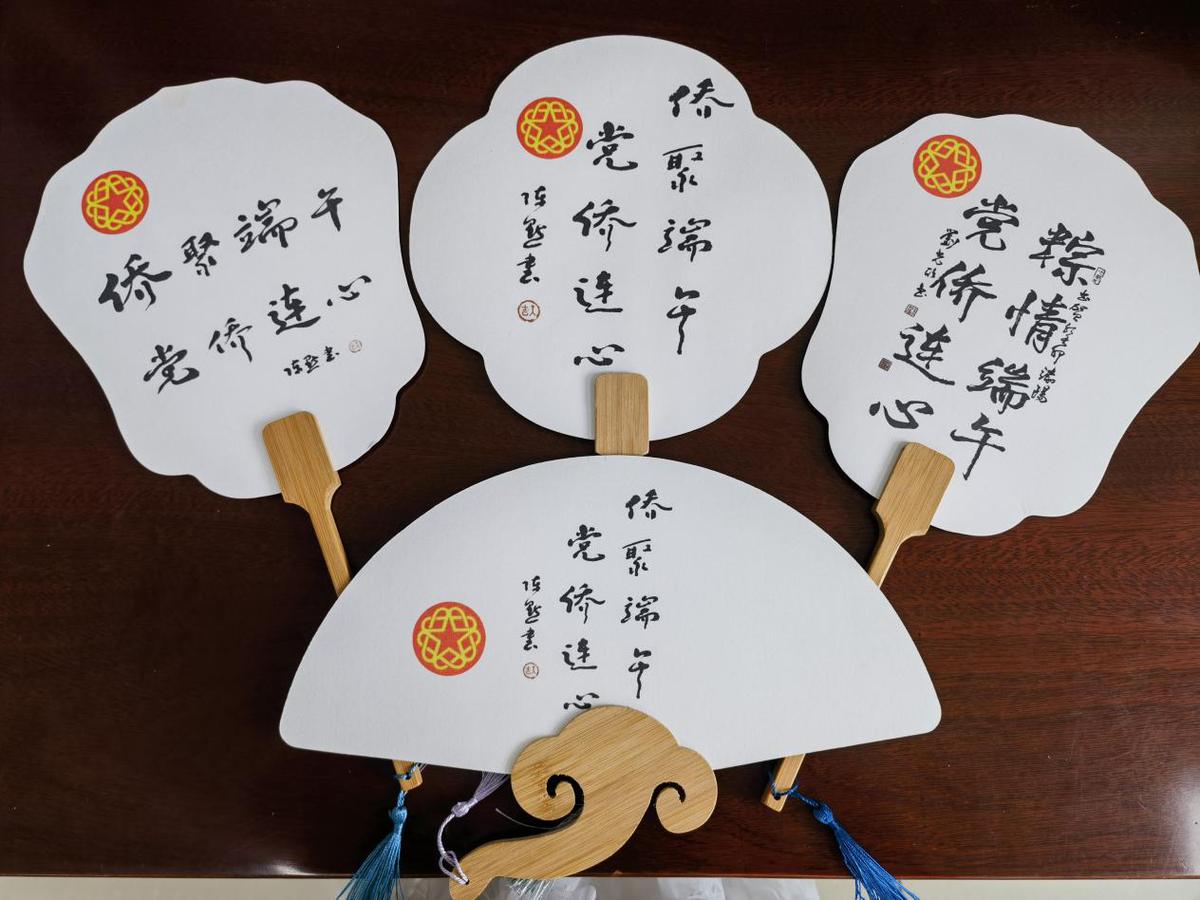 侨聚端午
党侨连心
陈益书
侨聚端午
党侨连心
陈益书
粽情端午
党侨连心
侨聚端午
党侨连心